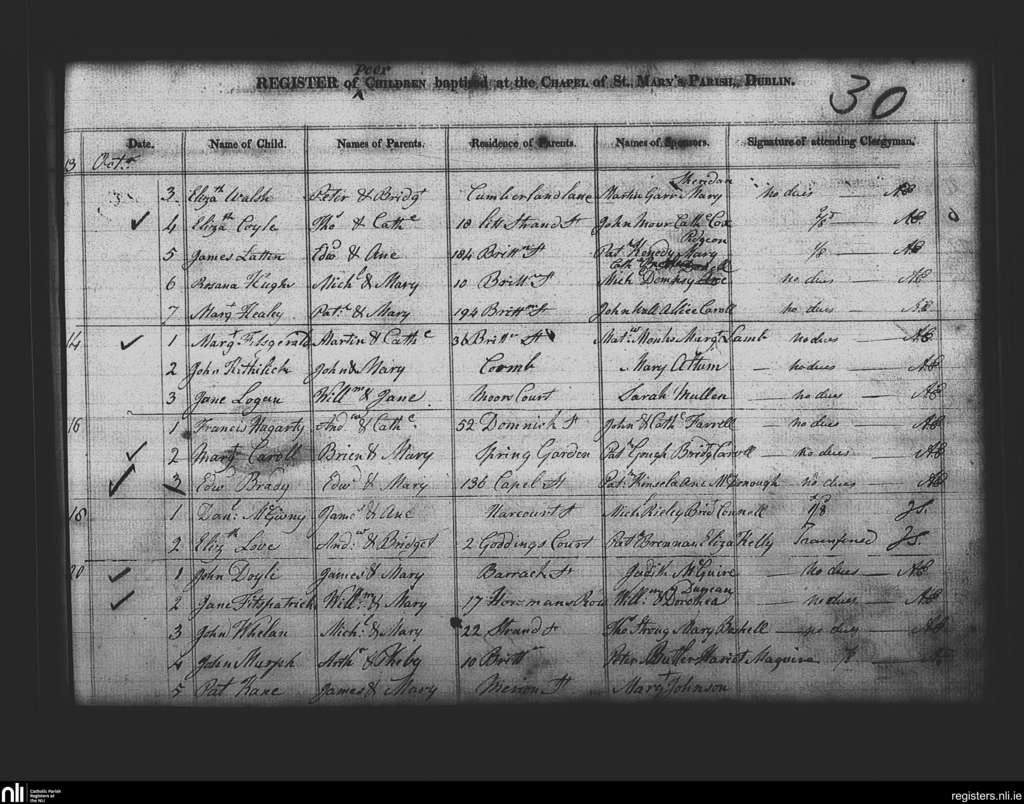 Poor
REGISTER of ^ CHILDREN baptised at the CHAPEL of St. MARY'S PARISH, DUBLIN.
30
Date. Name of Child. Names of Parents. Residence of Parents. Names of Sponsors. Signature of attending Clergyman.
13 Octr
Sheridan
3 Elizth Walsh Peter & Bridgt Cumberland lane Martin Mary no dues
4 Elizth Coyle Thos & Cathe 18 litt Strand St John Cathe Cox
Ridgeon
5 James Latten Edwd & Ane 184 Brittn St Patk Kenedy Mary 1/8
6 Rosana Hughs Michl & Mary 10 Brittn St Michl Dempsy no dues
7 Margt Healey Patk & Mary 194 Brittn St John Wall Alice Caroll no dues
14 1 Margt Fitsgerald Martin & Cathe 36 Brittn St Margt Lamb no dues
2 John John & Mary Coomb Mary no dues
3 Jane Logan Willm & Jane Moon Court Sarah Mullen no dues
16 1 Francis Hagarty Andw & Cathe 52 Dominick St John & Cathe Farrell no dues
2 Margt Caroll Brien & Mary Spring Garden Patk Gough Bridgt Caroll no dues
3 Edwd Brady Edwd & Mary 136 Capel St Patk Kinsela Ane McDonough no dues
18 1 Danl McGivny James & Ane Harcourt St Mich Brid Connell J.S.
2 Elizth Love Andw & Bridget 2 Goddings Court Patk Brennan Eliza Kelly J.S.
20 1 John Doyle James & Mary Barrack St Judith McGuire no dues
Duncan
2 Jane Fitspatrick Willm & Mary 17 Row Willm & Dorothea no dues
3 John Whelan Michl & Mary 22 Strand St Thos Strong Mary no dues
4 John Murph Arthr & Pheby 10 Brittn Peter Butler Hariet Maguire 1/8
5 Pat Kane James & Mary Merion St Margt Johnson
nli Catholic Parish Registers at the NLI
registers.nli.ie